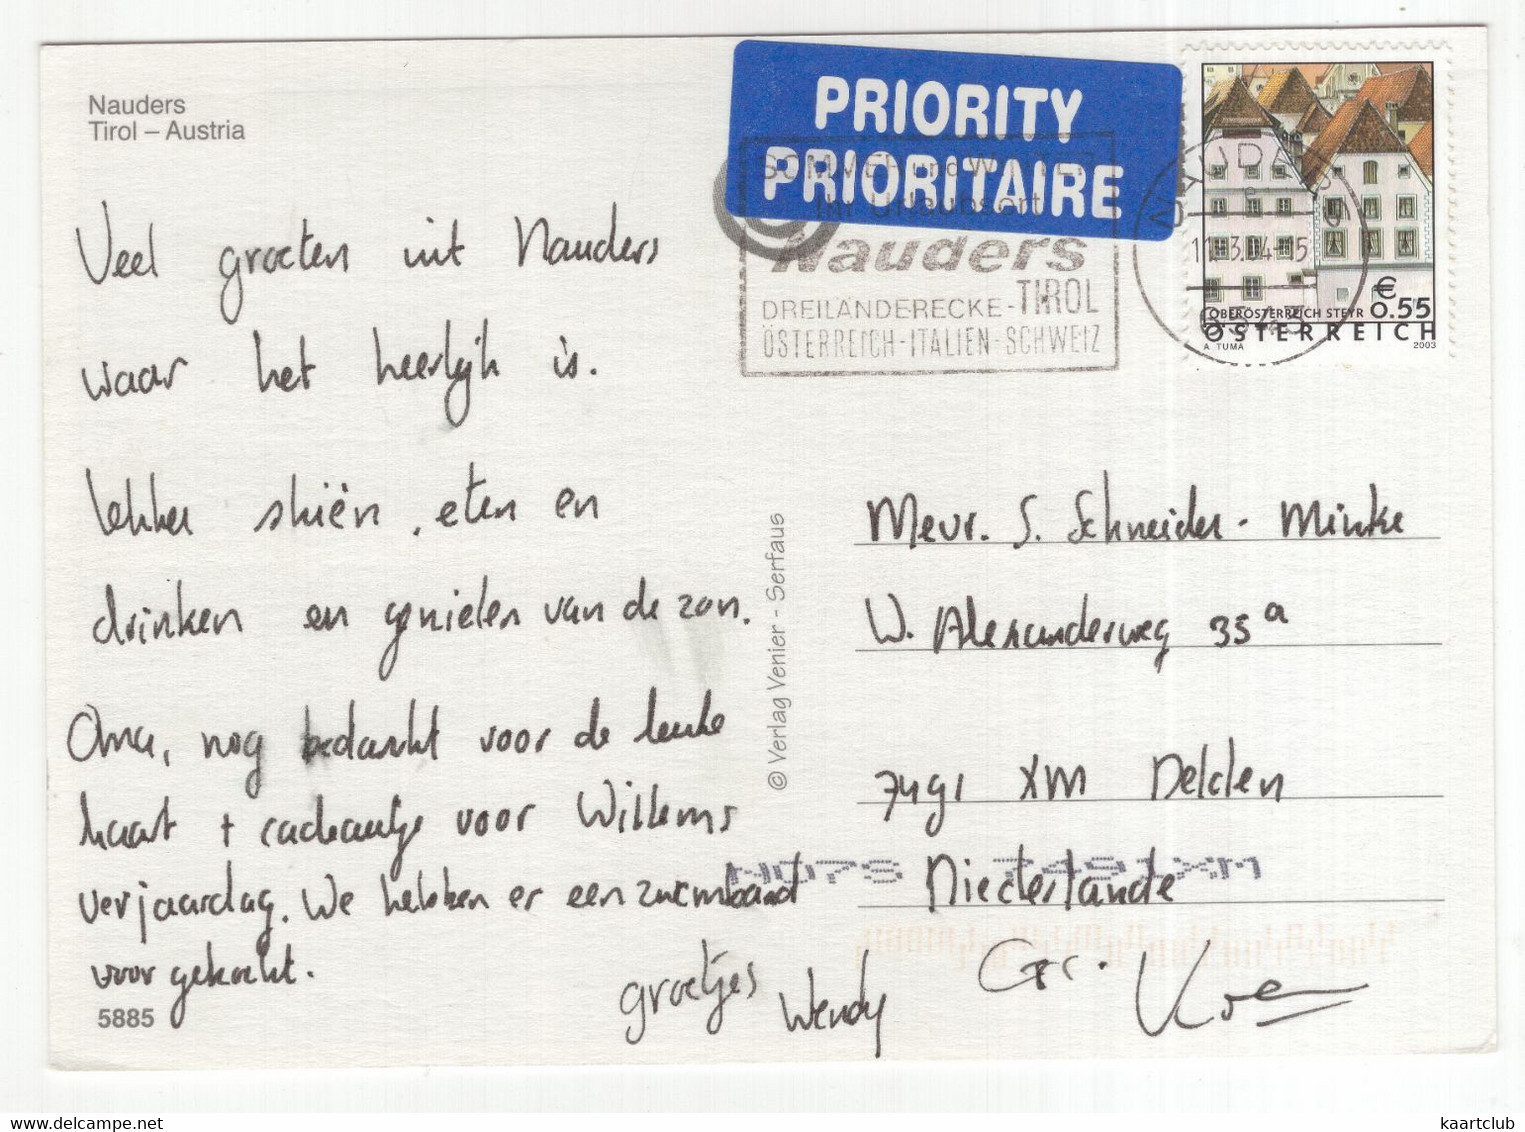 Nauders
Tirol – Austria
PRIORITY
PRIORITAIRE
SOMMER und WINTER
Ihr Urlaubsort
Nauders
TIROL
DREILÄNDERECKE-
ÖSTERREICH-ITALIEN-SCHWEIZ
NAUDERS
11.3.04-15
6543
€
0.55
OBERÖSTERREICH STEYR
ÖSTERREICH
A. TUMA 2003
Veel groeten uit Nauders
waar het heerlijk is.
lekker skiën, eten en
drinken en genieten van de zon.
Oma, nog bedankt voor de leuke
kaart + cadeautje voor Willems
verjaardag. We hebben er een zwemband
voor gekocht.
groetjes Wendy
Gr.
5885
© Verlag Venier - Serfaus
Mevr. S. Schneider - Minke
W. Alexanderweg 35a
7491 XM Delden
Niederlande
7491XM
kaartclub